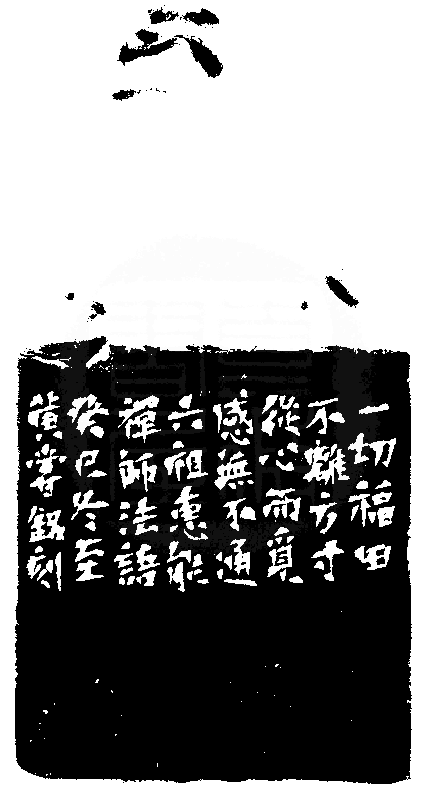 一切福田
不離方寸
從心而覓
感無不通
六祖惠能
禪師法語
癸巳冬至
黃嘗銘刻